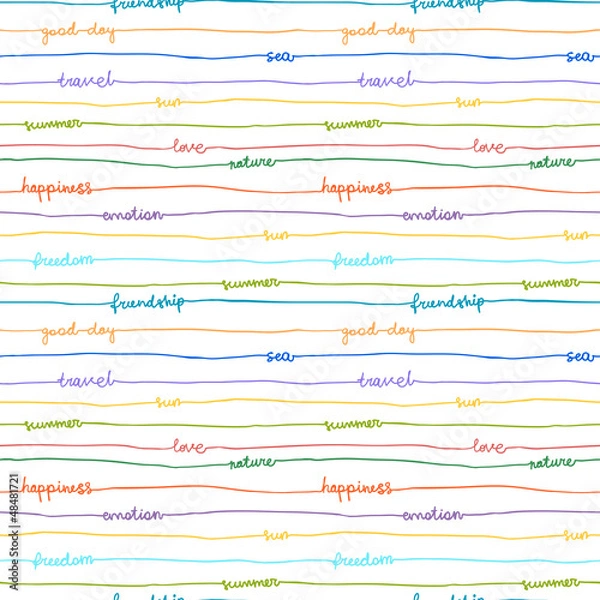 friendship friendship
good day good day
sea sea
travel travel
sun sun
summer summer
love love
nature nature
happiness happiness
emotion emotion
sun sun
freedom freedom
summer summer
friendship friendship
good day good day
sea sea
travel travel
sun sun
summer summer
love love
nature nature
happiness happiness
emotion emotion
sun sun
freedom freedom
summer summer
friendship friendship
Adobe Stock | #48481721